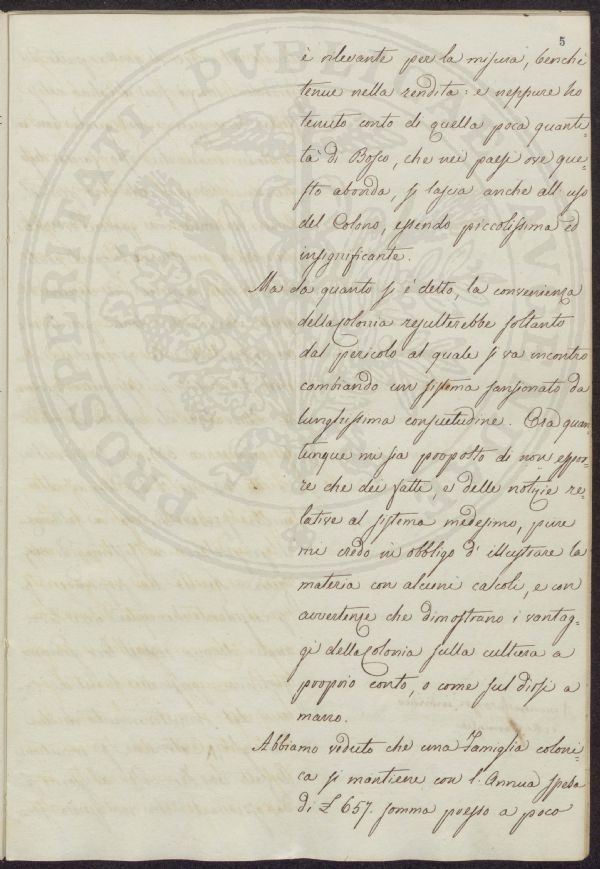 5
è rilevante per la misura, benchè
tenue nella rendita: e neppure ho
tenuto conto di quella poca quanti-
tà di Bosco, che nei paesi ove que-
sto abonda, si lascia anche all'uso
del Colono, essendo piccolissima ed
insignificante.
Ma da quanto si è detto, la convenienza
della Colonia resulterebbe soltanto
dal pericolo al quale si va incontro
cambiando un sistema sansionato da
lunghissima consuetudine. Ora quan-
tunque mi sia proposto di non espor-
re che dei fatti, e delle notizie re-
lative al sistema medesimo, pure
mi credo in obbligo d'illustrare la
materia con alcuni calcoli, e con
avvertenze che dimostrano i vantag-
gi della Colonia sulla cultura a
proprio conto, o come suol dirsi a
mano.
Abbiamo veduto che una Famiglia coloni-
ca si mantiene con l'Annua spesa
di £ 657. somma presso a poco
PROSPERITATI PVBLICAE AVGENDAE